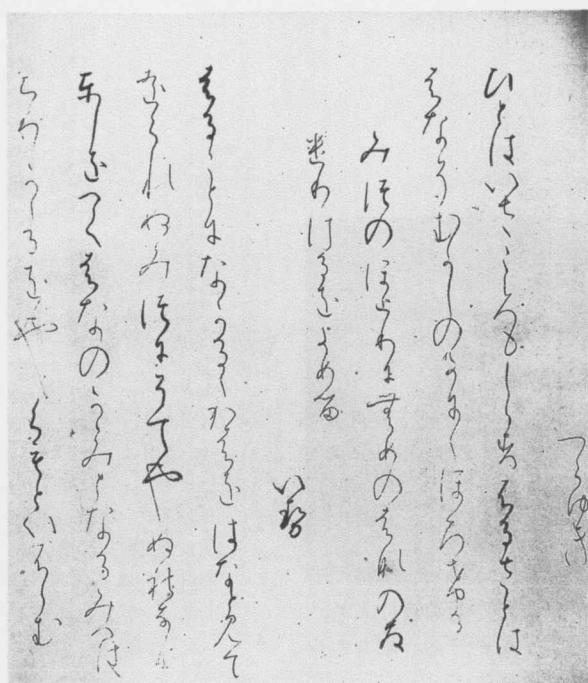 つらゆき
ひとはいさこゝろもしらすふるさとは
はなそむかしのかにゝほひける
みつのほとりにむめのはなのさ
けりけるをよめる
い勢
はることになかるゝかはをはなと見て
をられぬみつにそてやぬれなむ
としをへてはなのかゝみとなるみつは
ちりかゝるをやくもるといふらむ